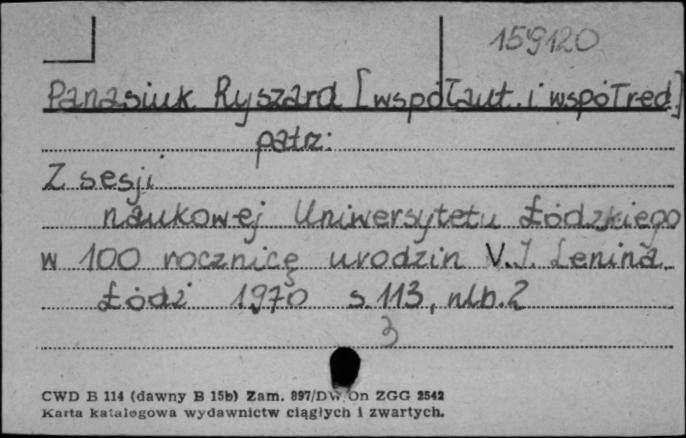 159120
Panasiuk Ryszard [współaut. i współred.]
patrz:
Z sesji
naukowej Uniwersytetu Łódzkiego
w 100 rocznicę urodzin V.I. Lenina.
Łódź 1970 s. 113, nlb. 2
3
CWD B 114 (dawny B 15b) Zam. 897/DW/On ZGG 2542
Karta katalogowa wydawnictw ciągłych i zwartych.